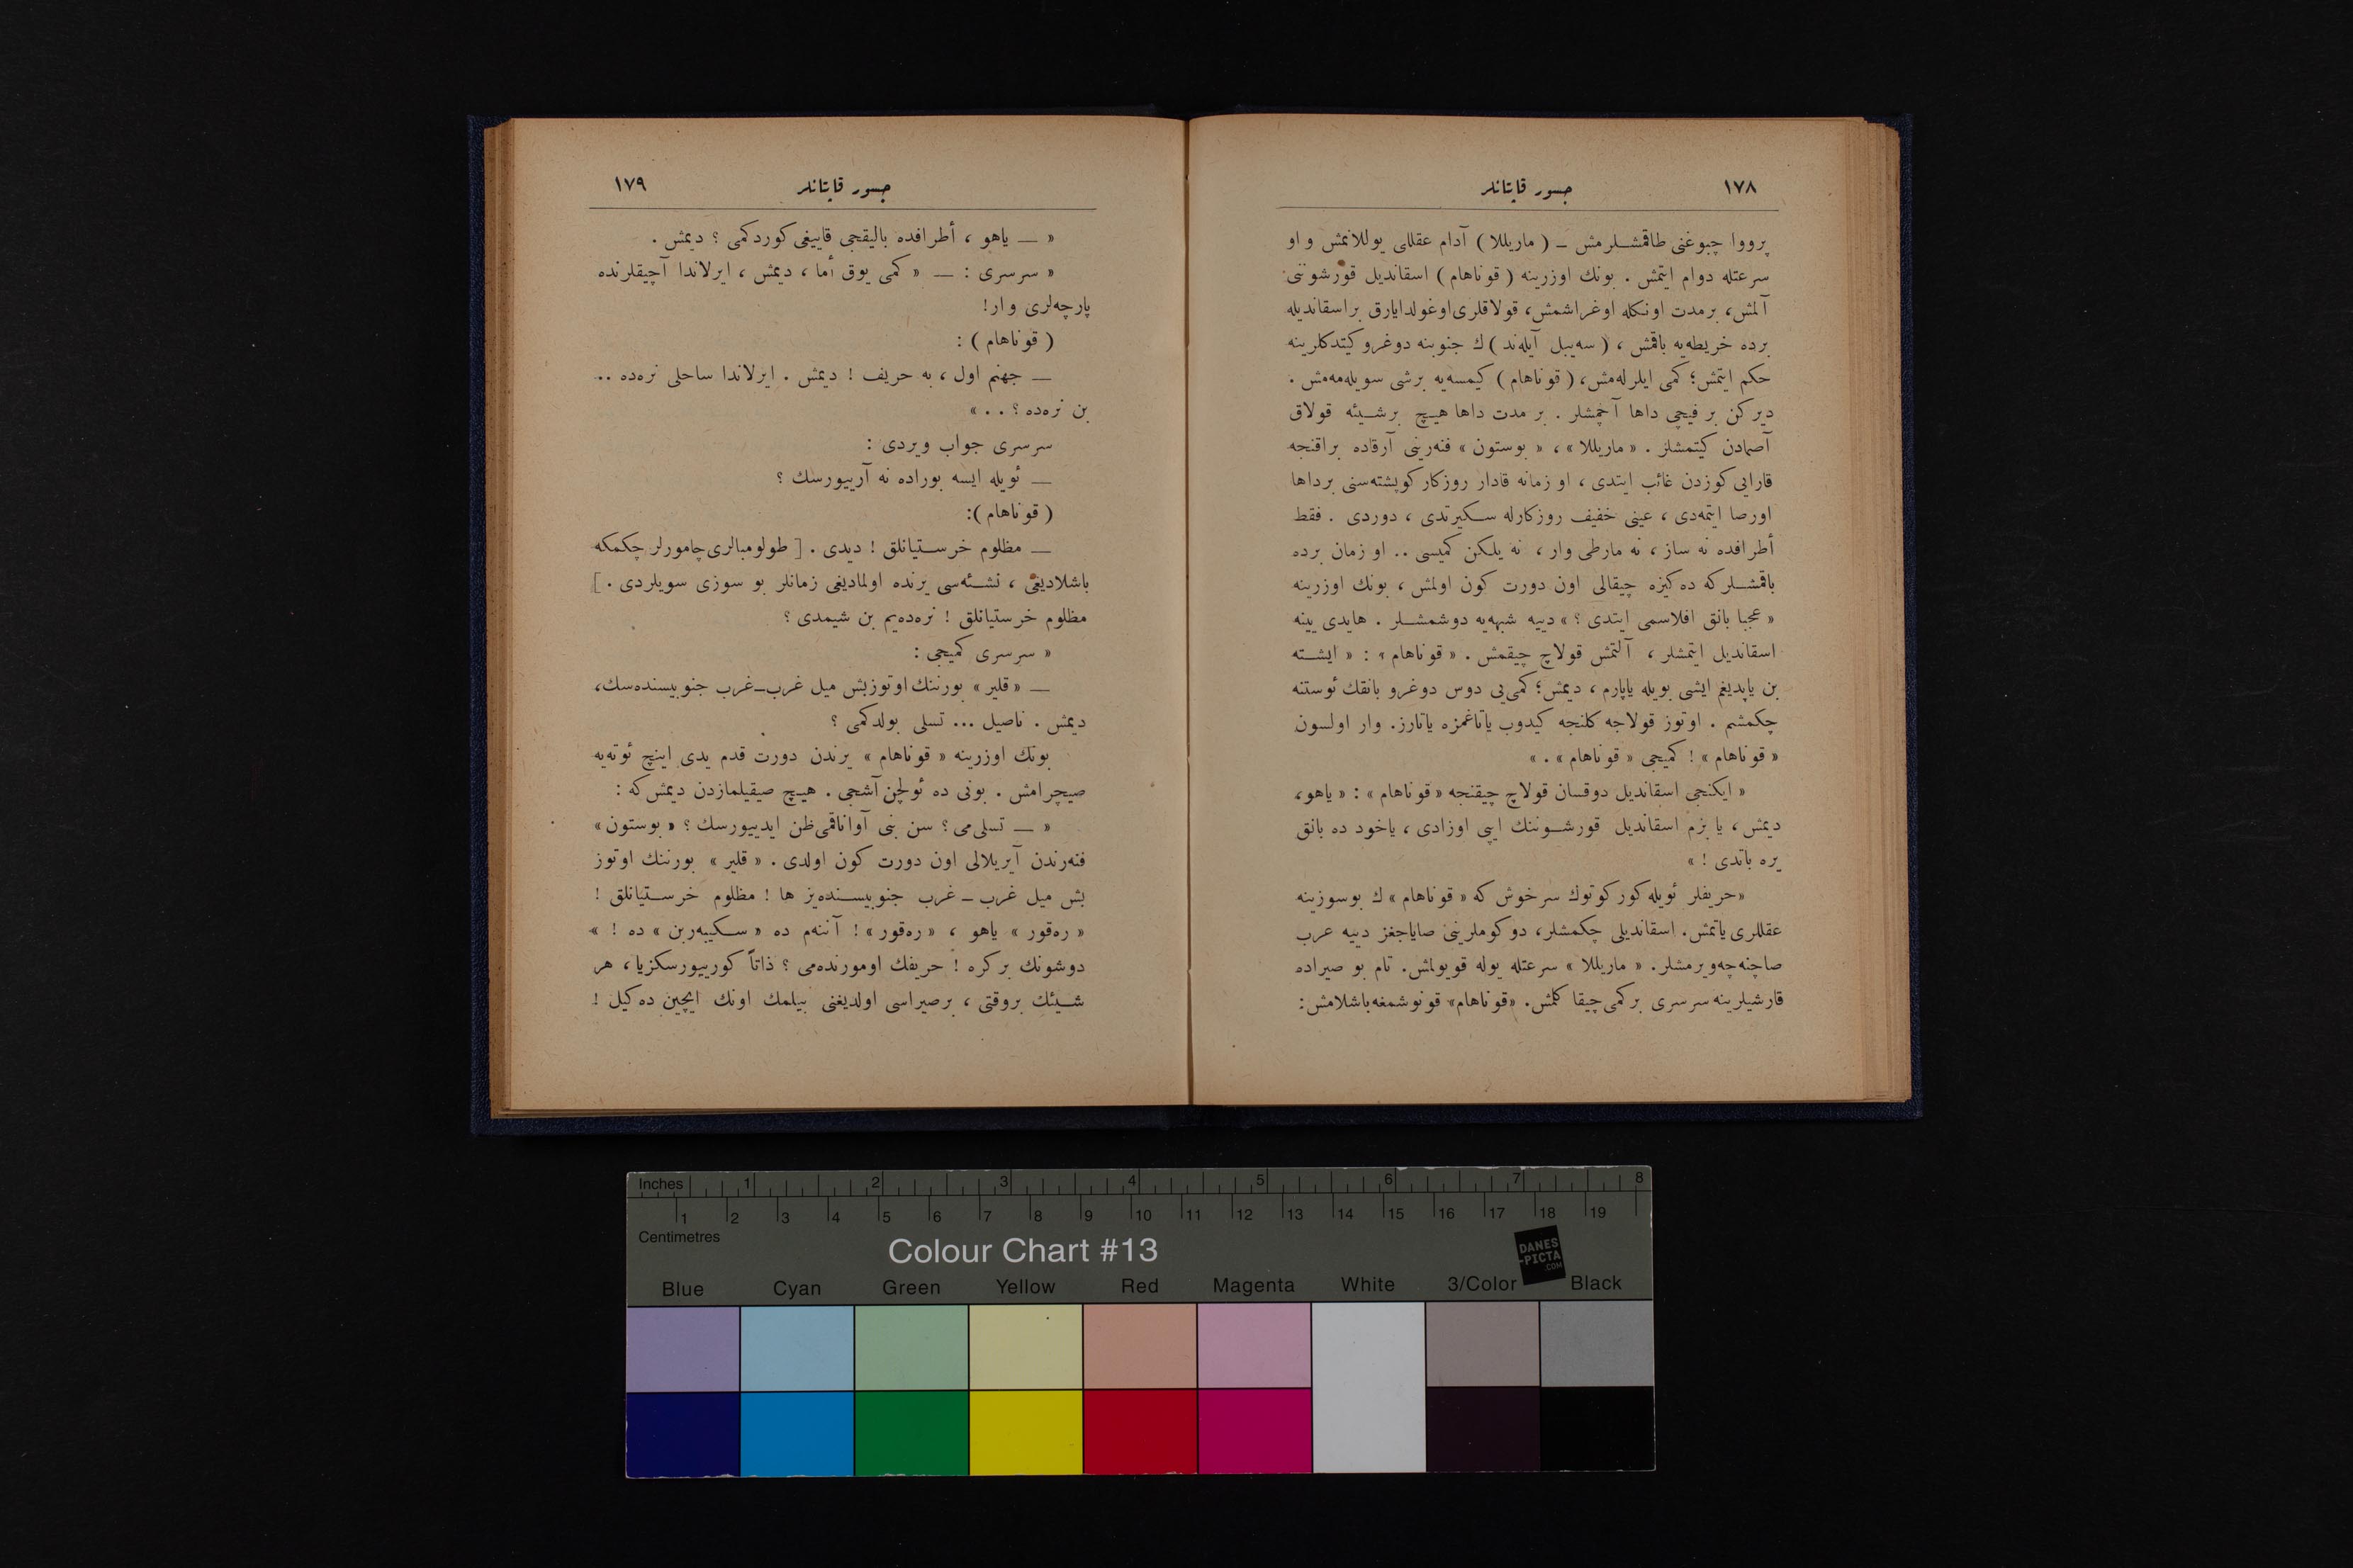 ١٧٨
جسور قاپتانلر
پرووا چبوغنی طاقمشلرمش ــ ( ماریللا ) آدام عقللی یوللانمش و او
سرعتله دوام ایتمش . بونك اوزرینه ( قوناهام ) اسقاندیل قورشوننی
آلمش، برمدت اونكله اوغراشمش، قولاقلری اوغولدایارق براسقاندیله
برده خریطه‌یه باقمش ، ( سه‌یبل آیله‌ند )ك جنوبنه دوغرو كیتدكلرینه
حكم ایتمش؛ كمی ایلرله‌مش، ( قوناهام ) كیمسه‌یه برشی سویله‌مه‌مش .
دیركن بر فیچی داها آچمشلر . بر مدت داها هیچ برشیئه قولاق
آصمادن كیتمشلر . « ماریللا » ، « بوستون » فنه‌رینی آرقاده براقنجه
قارایی كوزدن غائب ایتدی ، او زمانه قادار روزكار كوپشته‌سنی برداها
اورصا ایتمه‌دی ، عینی خفیف روزكارله سكیرتدی ، دوردی . فقط
أطرافده نه ساز ، نه مارطی وار ، نه یلكن كمیسی .. او زمان برده
باقمشلركه ده‌كیزه چیقالی اون دورت كون اولمش ، بونك اوزرینه
« عجبا بانق افلاسمی ایتدی ؟ » دییه شبهه‌یه دوشمشلر . هایدی یینه
اسقاندیل ایتمشلر ، آلتمش قولاچ چیقمش . « قوناهام » : « ایشته
بن یاپدیغم ایشی بویله یاپارم ، دیمش؛ كمی‌یی دوس دوغرو بانقك ئوستنه
چكمشم . اوتوز قولاجه كلنجه كیدوب یاتاغمزه یاتارز. وار اولسون
« قوناهام » ! كمیجی « قوناهام » . »
« ایكنجی اسقاندیل دوقسان قولاچ چیقنجه « قوناهام » : « یاهو ،
دیمش ، یا بزم اسقاندیل قورشوننك ایپی اوزادی ، یاخود ده بانق
یره باتدی ! »
« حریفلر ئویله كور كوتوك سرخوش كه « قوناهام » ك بوسوزینه
عقللری یاتمش. اسقاندیلی چكمشلر، دوكوملرینی صایاجغز دییه عرب
صاچنه چه‌ویرمشلر. « ماریللا » سرعتله یوله قویولمش. تام بو صیراده
قارشیلرینه سرسری بركمی چیقا كلمش. «قوناهام» قونوشمغه باشلامش :
١٧٩
جسور قاپتانلر
« ــ یاهو ، أطرافده بالیقجی قاییغی كوردكمی ؟ دیمش .
« سرسری : ــ « كمی یوق أما ، دیمش ، ایرلاندا آچیقلرنده
پارچه‌لری وار!
( قوناهام ) :
ــ جهنم اول ، به حریف ! دیمش . ایرلاندا ساحلی نره‌ده ..
بن نره‌ده ؟ . . »
سرسری جواب ویردی :
ــ ئویله ایسه بوراده نه آرییورسك ؟
( قوناهام ):
ــ مظلوم خرستیانلق ! دیدی . [ طولومبالری چامورلر چكمكه
باشلادیغی ، نشئه‌سی یرنده اولمادیغی زمانلر بو سوزی سویلردی . ]
مظلوم خرستیانلق ! نره‌ده‌یم بن شیمدی ؟
« سرسری كمیجی :
ــ « قلیر » بورننك اوتوزبش میل غرب ــ غرب جنوبیسنده‌سك،
دیمش . ناصیل ... تسلی بولدكمی ؟
بونك اوزرینه « قوناهام » یرندن دورت قدم یدی اینچ ئوته‌یه
صیچرامش . بونی ده ئولچن آشجی . هیچ صیقیلمازدن دیمش كه :
« ــ تسلی‌می ؟ سن بنی آواناقمی ظن ایدییورسك ؟ « بوستون »
فنه‌رندن آیریلالی اون دورت كون اولدی . « قلیر » بورننك اوتوز
بش میل غرب ــ غرب جنوبیسنده‌یز ها ! مظلوم خرستیانلق !
« ره‌قور » یاهو ، « ره‌قور » ! آننه‌م ده « سكیبه‌رین » ده ! »
دوشونك بركره ! حریفك اومورنده‌می ؟ ذاتاً كورییورسكزیا ، هر
شیئك بروقتی ، برصیراسی اولدیغنی بیلمك اونك ایچین ده‌كیل !
Inches 1 2 3 4 5 6 7 8
1 2 3 4 5 6 7 8 9 10 11 12 13 14 15 16 17 18 19
Centimetres
Colour Chart #13
DANES-PICTA.COM
Blue Cyan Green Yellow Red Magenta White 3/Color Black